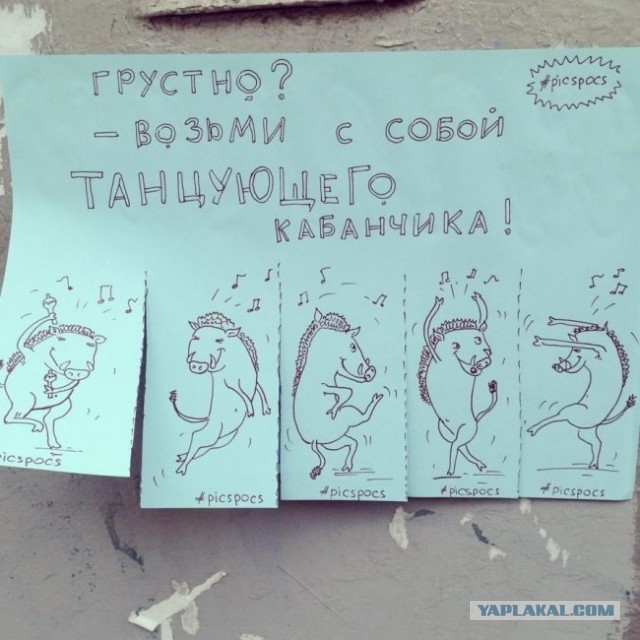 ГРУСТНО?
#picspocs
- ВОЗЬМИ С СОБОЙ
ТАНЦУЮЩЕГО
КАБАНЧИКА!
picspocs
#picspocs
#picspocs
#picspocs
#picspocs
YAPLAKAL.COM